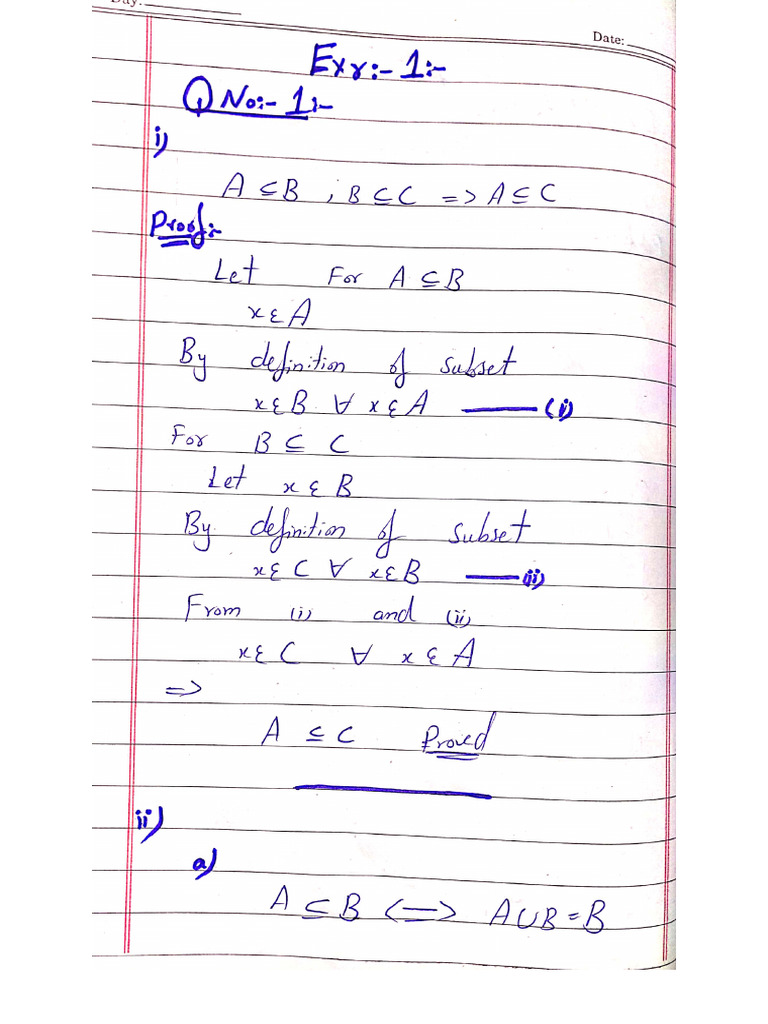 Day:
Date:
Exr:- 1:-
Q No:- 1:-
i)
A ⊆ B , B ⊆ C => A ⊆ C
Proof:-
Let For A ⊆ B
x ε A
By definition of subset
x ε B ∀ x ε A ——— (i)
For B ⊆ C
Let x ε B
By definition of subset
x ε C ∀ x ε B ——— (ii)
From (i) and (ii)
x ε C ∀ x ε A
=>
A ⊆ C Proved
ii)
a)
A ⊆ B <=> A ∪ B = B